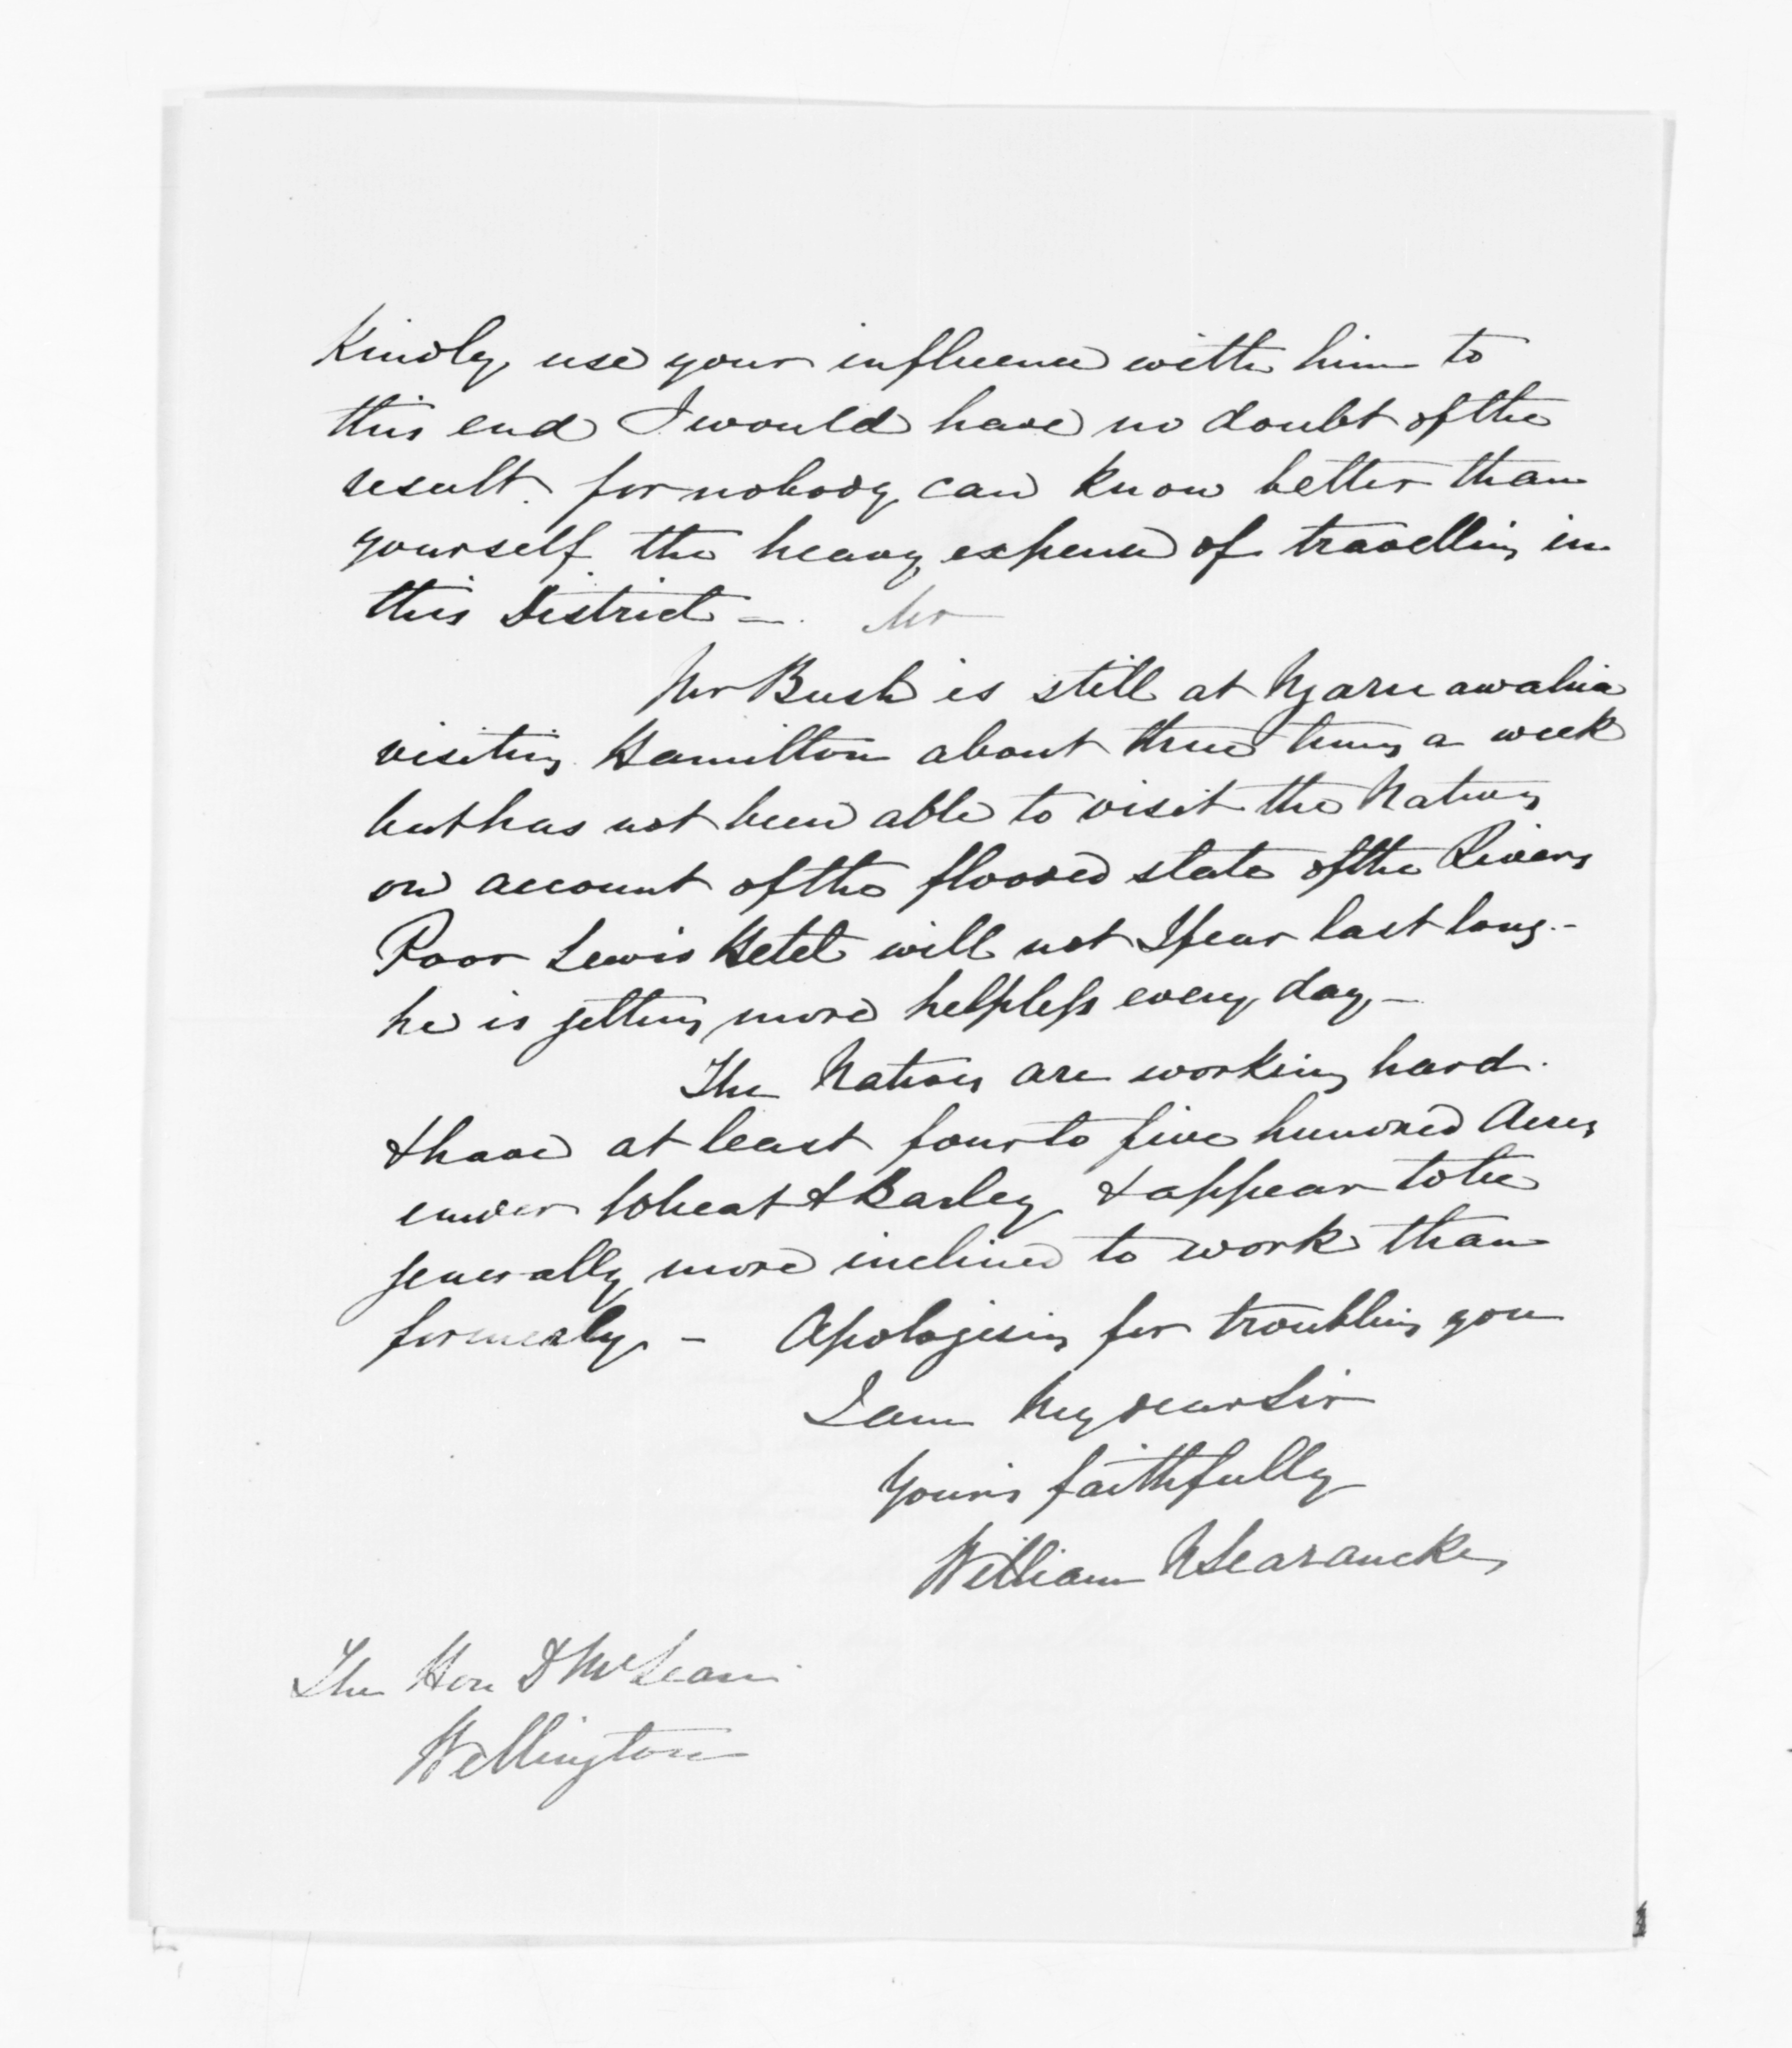 Kindly use your influence with him to
this end I would have no doubt of the
result. for nobody can know better than
yourself the heavy expense of travelling in
this District — Mr
Mr Bush is still at Ngaruawahia
visiting Hamilton about three times a week
but has not been able to visit the Natives
on account of the flooded state of the Rivers
Poor Lewis Hetet will not I fear last long. -
he is getting more helpless every day, —
The Natives are working hard.
& have at least four to five hundred Acres
under Wheat & Barley & appear to be
generally more inclined to work than
formerly. — Apologising for troubling you
I am My dear Sir
Yours faithfully
William N Searancke
The Hon D McLean
Wellington